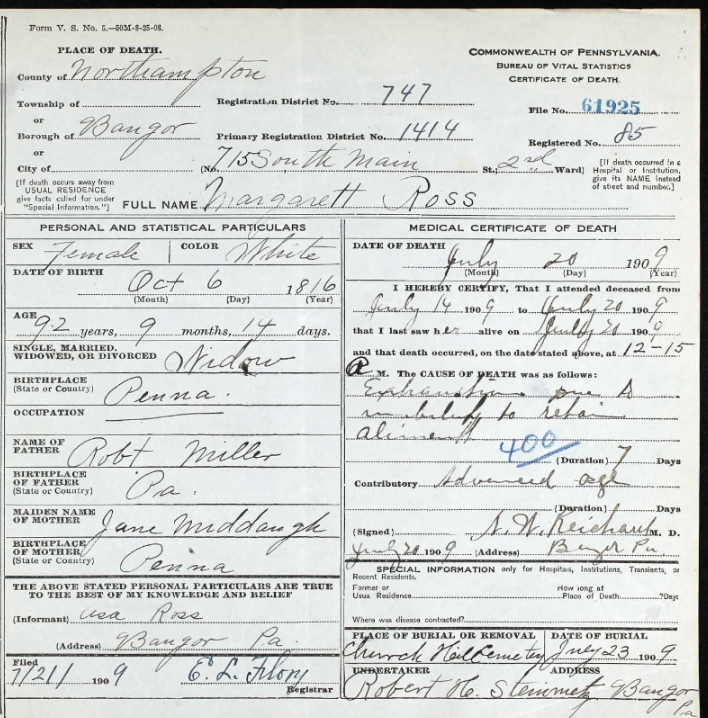 Form V. S. No. 5.—50M-8-25-08.
PLACE OF DEATH.
County of Northampton
Township of
or
Borough of Bangor
or
City of
[If death occurs away from
USUAL RESIDENCE
give facts called for under
"Special Information."]
COMMONWEALTH OF PENNSYLVANIA.
BUREAU OF VITAL STATISTICS
CERTIFICATE OF DEATH.
Registration District No. 747
File No. 61925
Primary Registration District No. 1414
Registered No. 85
(No. 715 South Main St.; 2nd Ward)
[If death occurred in a
Hospital or Institution,
give its NAME instead
of street and number.]
FULL NAME Margarett Ross
PERSONAL AND STATISTICAL PARTICULARS
SEX Female
COLOR White
DATE OF BIRTH
Oct 6 1816
(Month) (Day) (Year)
AGE
92 years, 9 months, 14 days.
SINGLE, MARRIED,
WIDOWED, OR DIVORCED Widow
BIRTHPLACE
(State or Country) Penna.
OCCUPATION
NAME OF
FATHER Robt Miller
BIRTHPLACE
OF FATHER
(State or Country) Pa.
MAIDEN NAME
OF MOTHER Jane Middaugh
BIRTHPLACE
OF MOTHER
(State or Country) Penna
THE ABOVE STATED PERSONAL PARTICULARS ARE TRUE
TO THE BEST OF MY KNOWLEDGE AND BELIEF
(Informant) Asa Ross
(Address) Bangor Pa.
Filed
7/21/ 1909 E. L. Flory
Registrar
MEDICAL CERTIFICATE OF DEATH
DATE OF DEATH
July 20 1909
(Month) (Day) (Year)
I HEREBY CERTIFY, That I attended deceased from
July 14 1909, to July 20 1909
that I last saw her alive on July 20 1909
and that death occurred, on the date stated above, at 12-15
A M. The CAUSE OF DEATH was as follows:
Exhaustion due to
inability to retain
aliment
400
(Duration) 7 Days
Contributory Advanced age
(Duration) Days
(Signed) N. W. Reichard M. D.
July 20 1909 (Address) Bangor Pa.
SPECIAL INFORMATION only for Hospitals, Institutions, Transients, or
Recent Residents.
Former or
Usual Residence
How long at
Place of Death ? Days
Where was disease contracted?
PLACE OF BURIAL OR REMOVAL
Church Hill Cemetery
DATE OF BURIAL
July 23 1909
UNDERTAKER
Robert H. Stemmetz
ADDRESS
Bangor
Pa